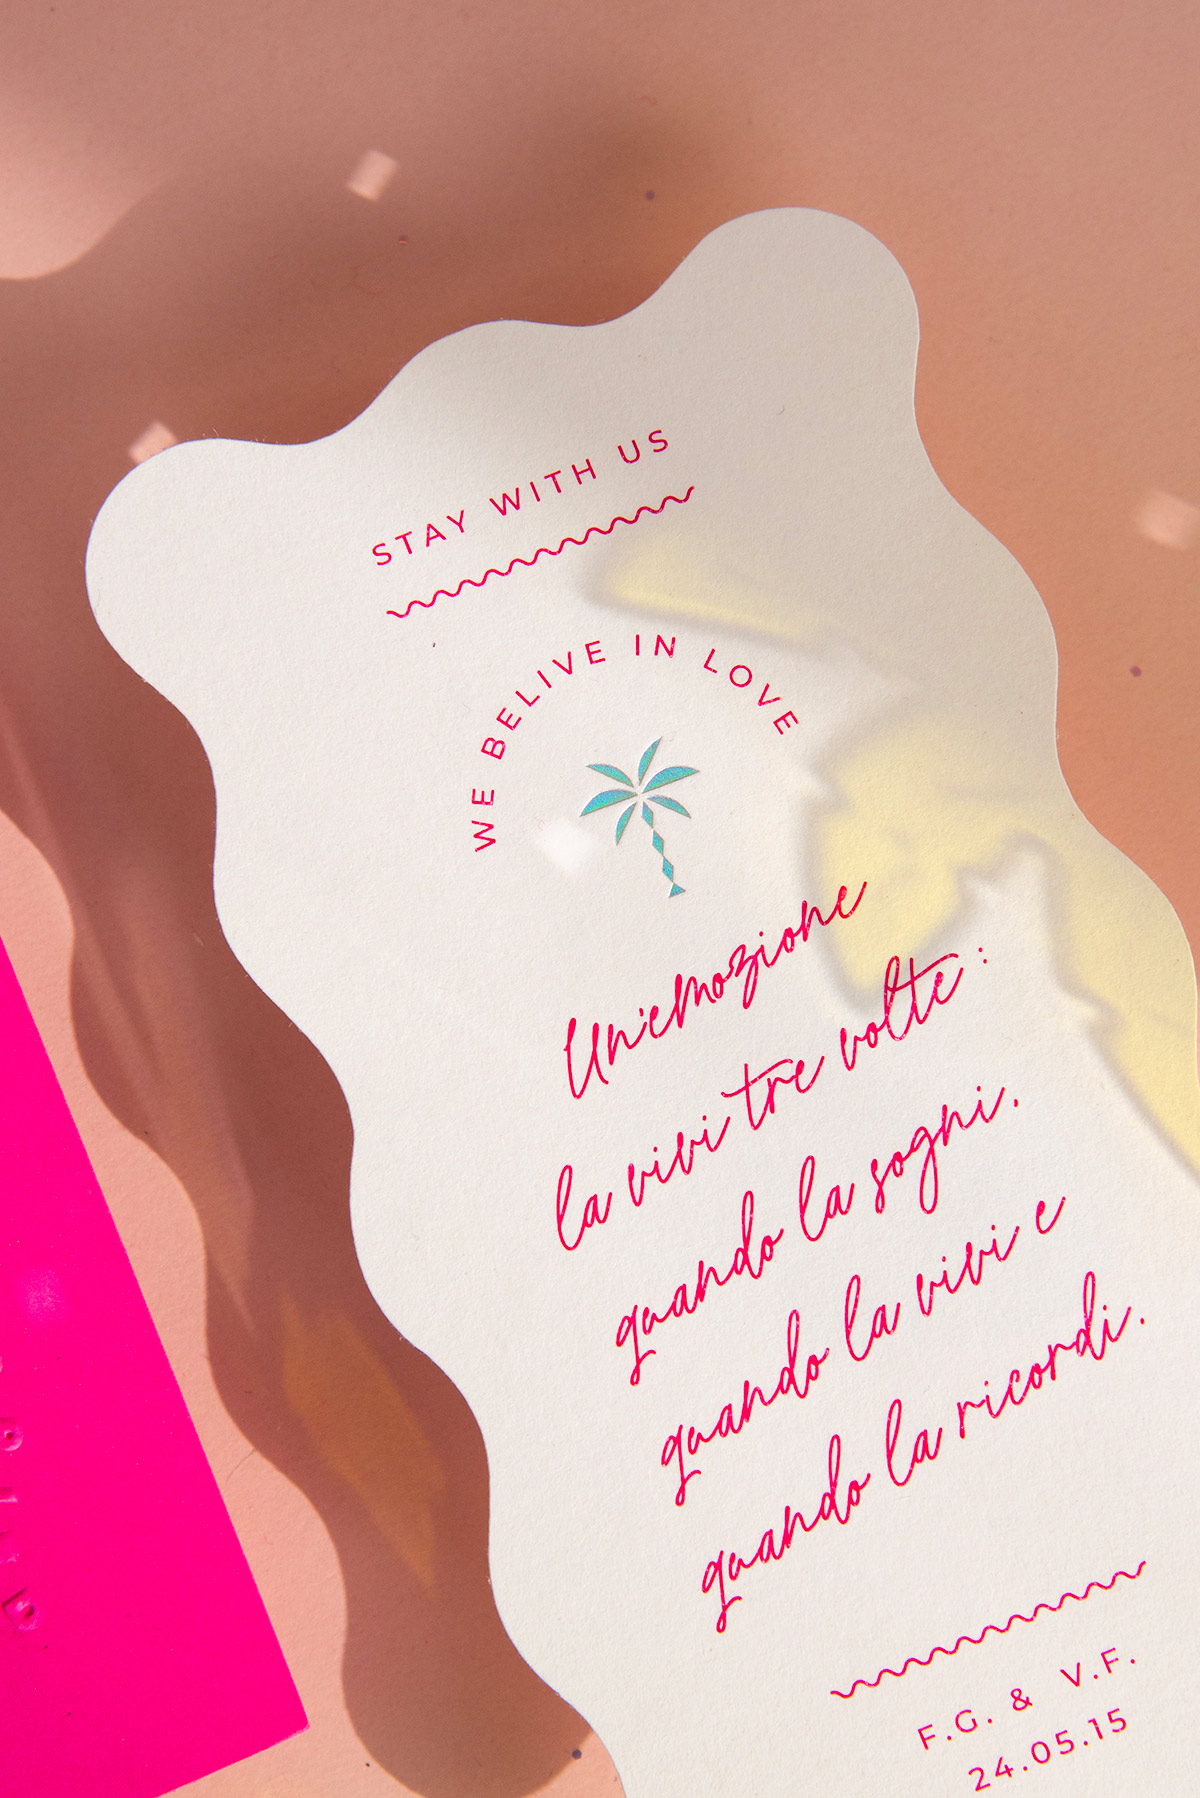 STAY WITH US
WE BELIVE IN LOVE
Un'emozione
la vivi tre volte:
quando la sogni.
quando la vivi e
quando la ricordi.
F.G. & V.F.
24.05.15